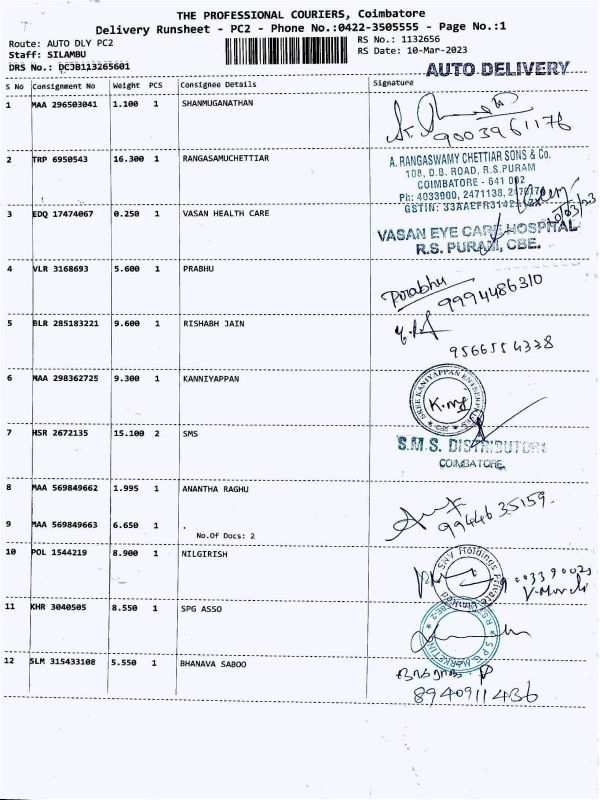 THE PROFESSIONAL COURIERS, Coimbatore
Delivery Runsheet - PC2 - Phone No.:0422-3505555 - Page No.:1
Route: AUTO DLY PC2
RS No.: 1132656
Staff: SILAMBU
RS Date: 10-Mar-2023
DRS No.: DCJB113265601
AUTO DELIVERY
S No Consignment No Weight PCS Consignee Details Signature
1 MAA 296503041 1.100 1 SHANMUGANATHAN
9003961176
2 TRP 6950543 16.300 1 RANGASAMUCHETTIAR
A. RANGASWAMY CHETTIAR SONS & Co.
108, D.B. ROAD, R.S.PURAM
COIMBATORE - 641 002
Ph: 4033900, 2471138,
GSTIN:
3 EDQ 17474067 0.250 1 VASAN HEALTH CARE
VASAN EYE CARE HOSPITAL
R.S. PURAM, CBE.
4 VLR 3168693 5.600 1 PRABHU
Prabhu 9994486310
5 BLR 285183221 9.600 1 RISHABH JAIN
9566554338
6 MAA 298362725 9.300 1 KANNIYAPPAN
SREE KANIYAPPAN ENTERPRISES
7 HSR 2672135 15.100 2 SMS
S.M.S. DISTRIBUTORS
COIMBATORE.
8 MAA 569849662 1.995 1 ANANTHA RAGHU
9944635159
9 MAA 569849663 6.650 1 .
No.Of Docs: 2
10 POL 1544219 8.900 1 NILGIRISH
SNV Holdings Private Limited
11 KHR 3040505 8.550 1 SPG ASSO
12 SLM 315433108 5.550 1 BHANAVA SABOO
8940911436